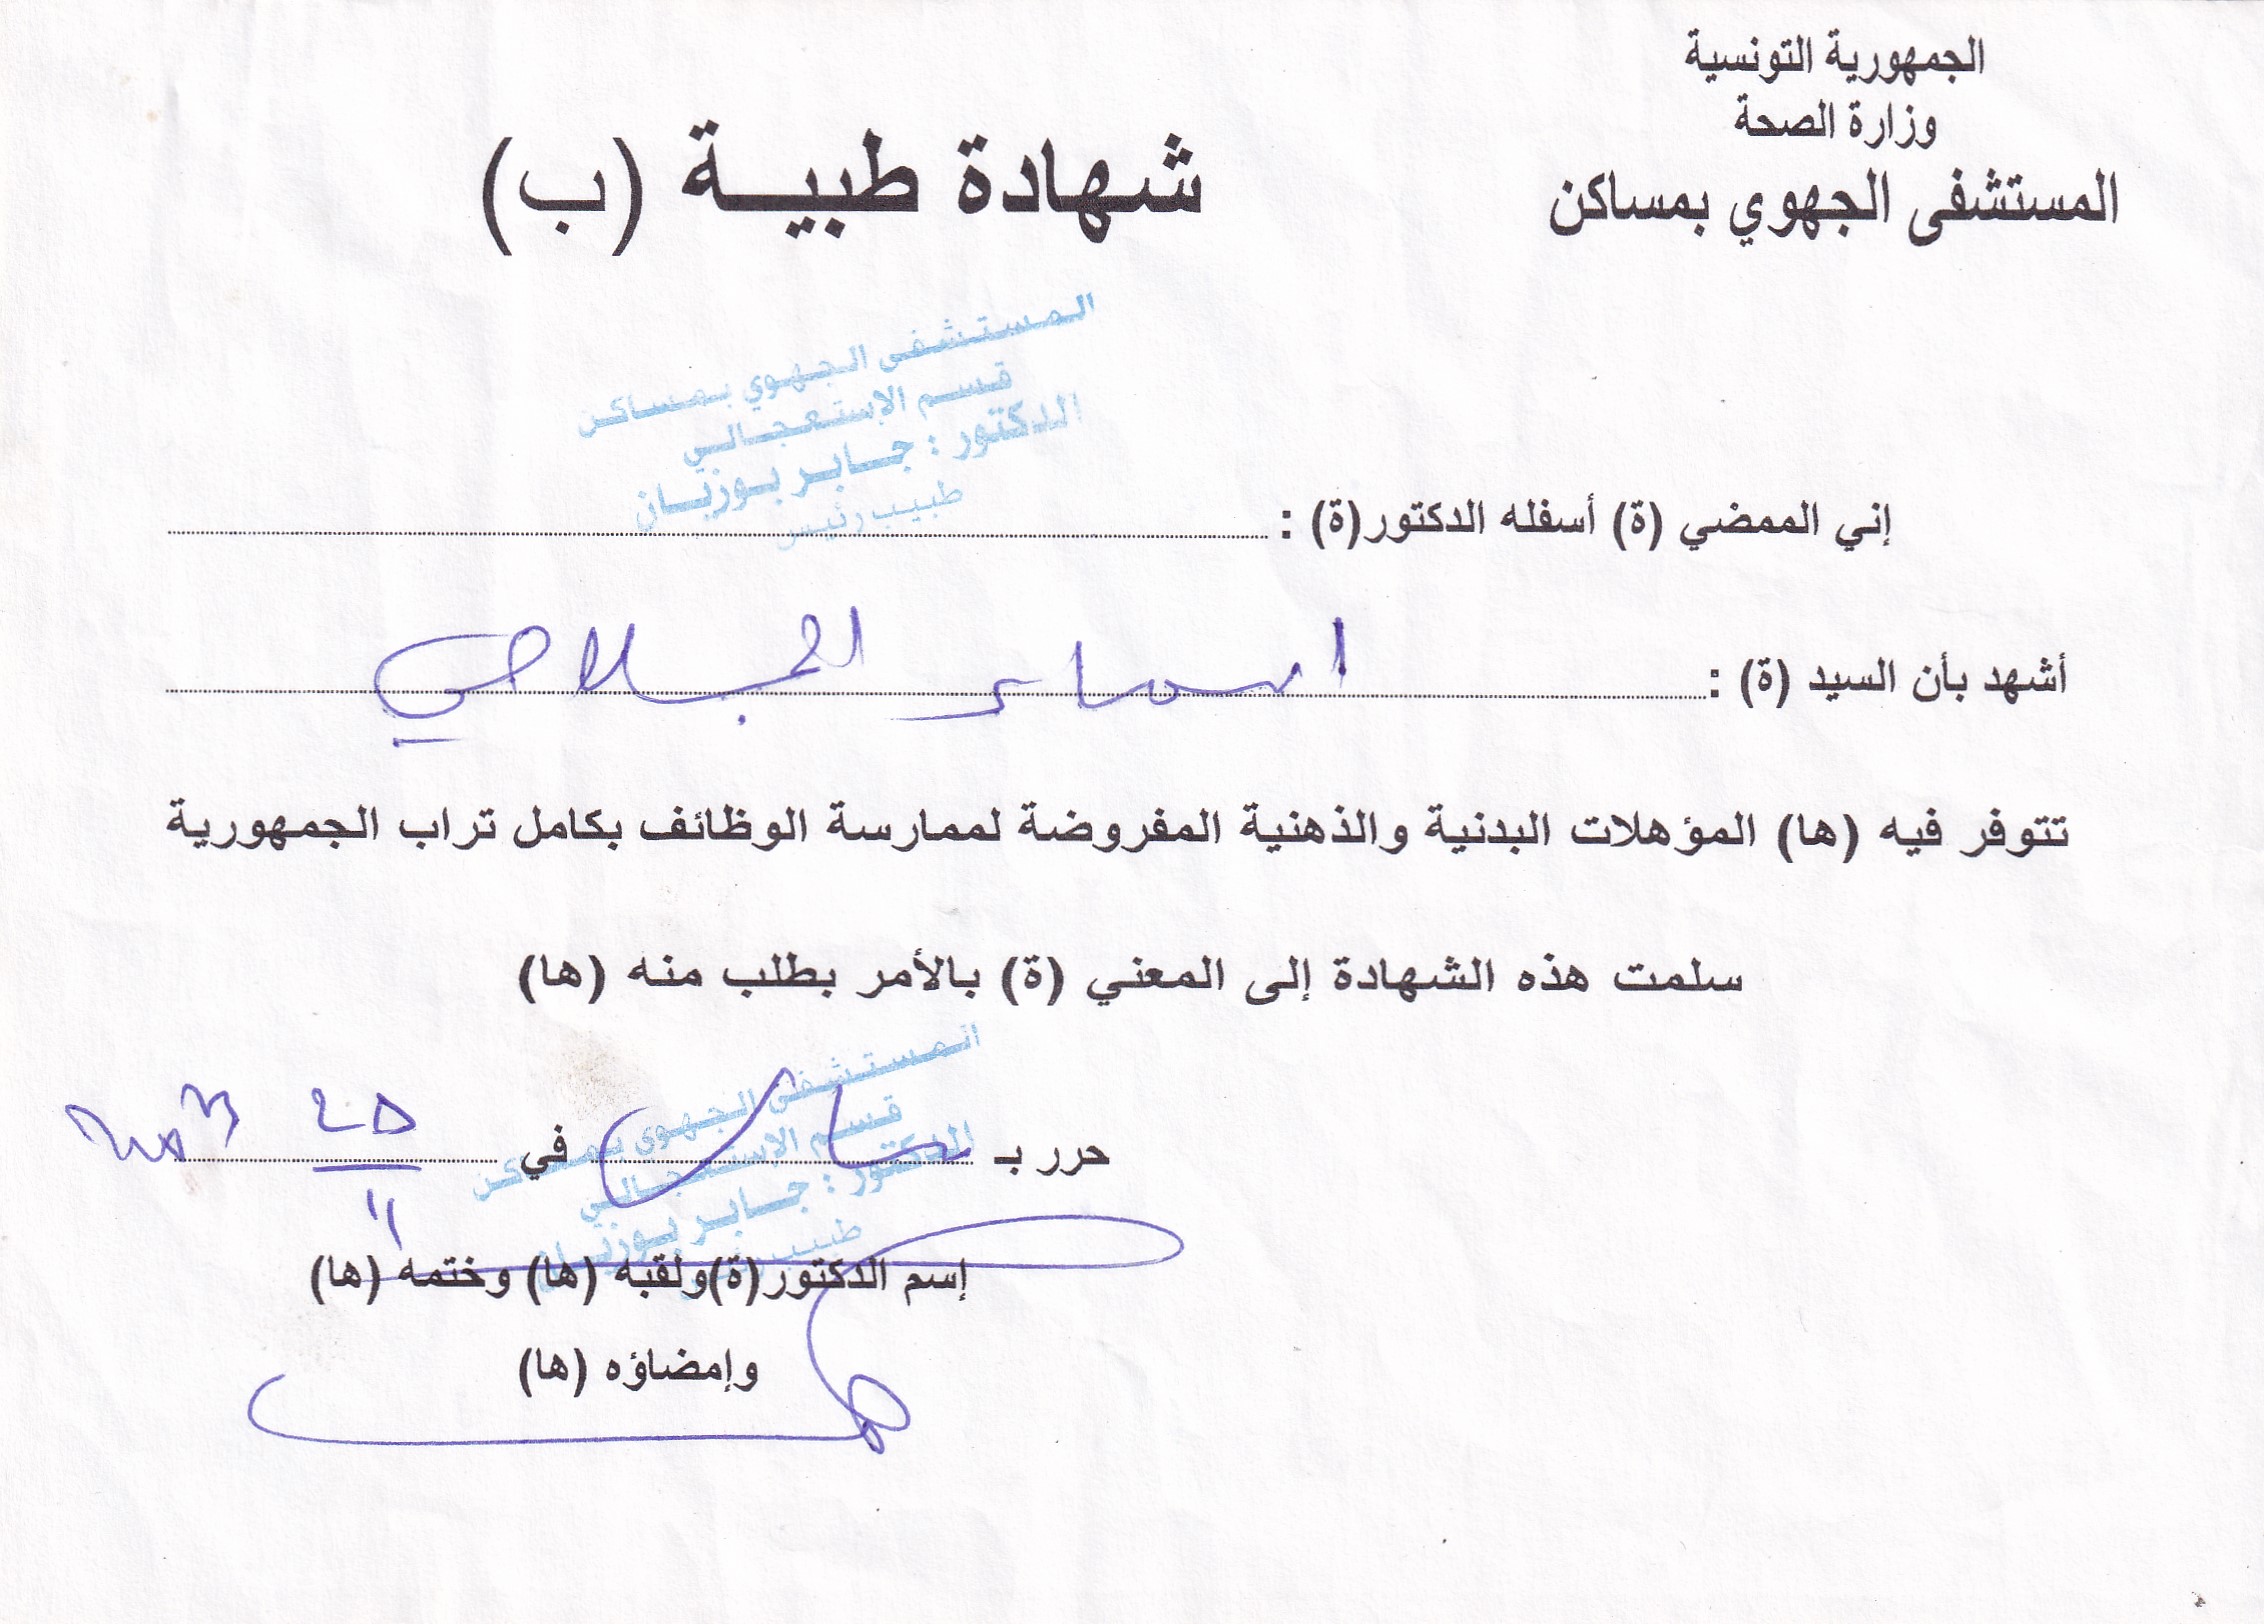 الجمهورية التونسية
وزارة الصحة
المستشفى الجهوي بمساكن
شهادة طبيـــة (ب)
المستشفى الجهوي بمساكن
قسم الإستعجالي
الدكتور : جابر بوزيان
طبيب رئيس
إني الممضي (ة) أسفله الدكتور(ة) :
أشهد بأن السيد (ة) : اسماء الجلاصي
تتوفر فيه (ها) المؤهلات البدنية والذهنية المفروضة لممارسة الوظائف بكامل تراب الجمهورية
سلمت هذه الشهادة إلى المعني (ة) بالأمر بطلب منه (ها)
المستشفى الجهوي بمساكن
قسم الإستعجالي
الدكتور : جابر بوزيان
طبيب رئيس
حرر بـ مساكن في
إسم الدكتور(ة)ولقبه (ها) وختمه (ها)
وإمضاؤه (ها)